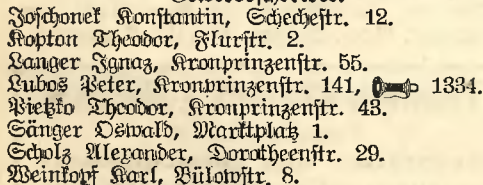 Joschonek Konstantin, Schechestr. 12.
Kopton Theodor, Flurstr. 2.
Langer Ignaz, Kronprinzenstr. 55.
Lubos Peter, Kronprinzenstr. 141, 1334.
Pietzko Theodor, Kronprinzenstr. 43.
Sänger Oswald, Marktplatz 1.
Scholz Alexander, Dorotheenstr. 29.
Weinkopf Karl, Bülowstr. 8.